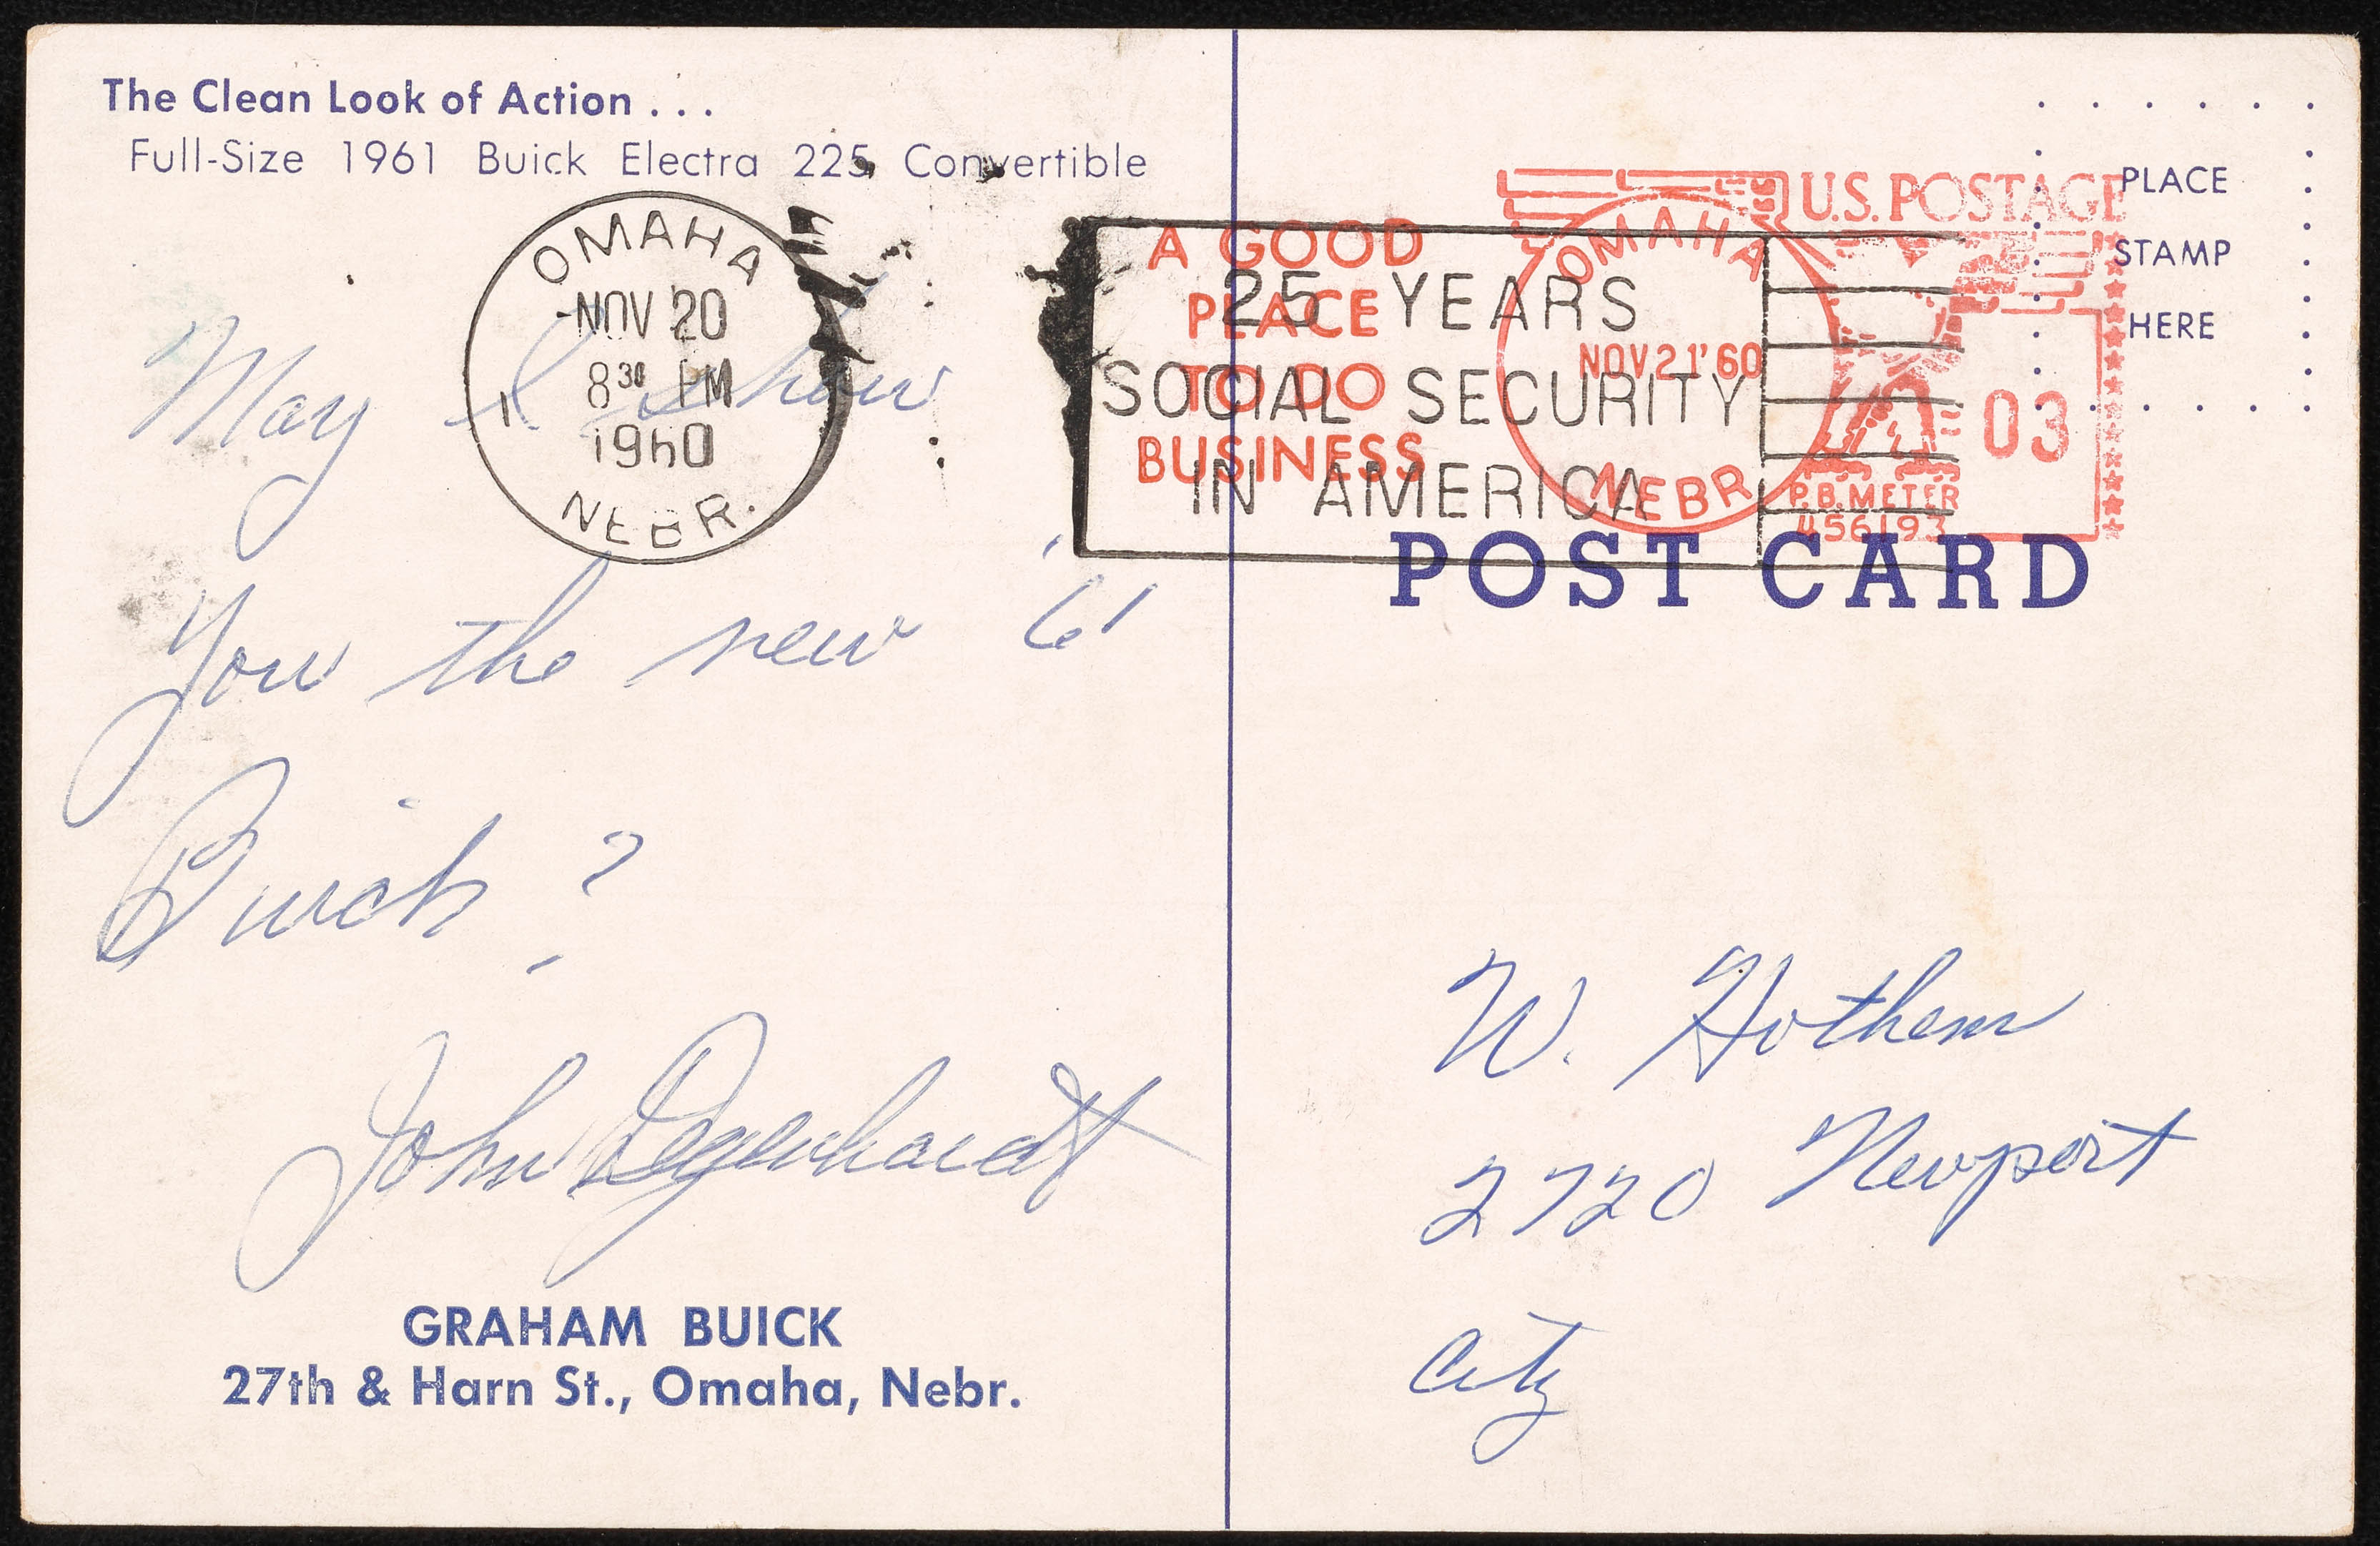 The Clean Look of Action . . .
Full-Size 1961 Buick Electra 225 Convertible
OMAHA
NOV 20
8 30 PM
1960
1
NEBR.
May I show
you the new '61
Buick?
John Degenhardt
GRAHAM BUICK
27th & Harn St., Omaha, Nebr.
25 YEARS
SOCIAL SECURITY
IN AMERICA
A GOOD
PLACE
TO DO
BUSINESS
OMAHA
NOV 21 '60
NEBR
U.S. POSTAGE
03
P.B. METER
456193
PLACE
STAMP
HERE
POST CARD
W. Hothem
2720 Newport
City